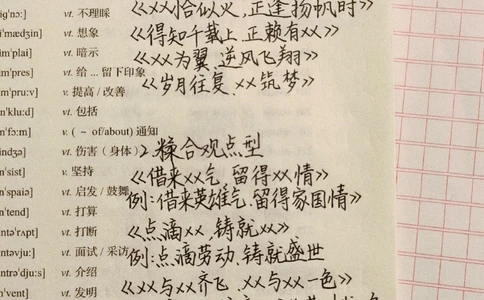 ɪɡ'nɔ:] vt. 不理睬 《××恰似火,正逢扬帆时》
i'mædʒin] vt. 想象 《得知千载上,正赖有××》
im'plai] vt. 暗示 《××为翼,逆风飞翔》
im'pres] vt. 给 ... 留下印象
im'pru:v] v. 提高 / 改善 《岁月往复,××筑梦》
in'klu:d] vt. 包括
in'fɔ:m] v. ( ~ of/about) 通知
indʒə] vt. 伤害(身体) 2.糅合观点型
in'sist] v. 坚持 《借来××气,留得××情》
in'spaiə] vt. 启发 / 鼓舞 例:《借来英雄气,留得家国情》
in'tend] vt. 打算
intə'rʌpt] vt. 打断 《点滴××,铸就××》
intəvju:] vt. 面试 / 采访 例:点滴劳动,铸就盛世
intrə'dju:s] vt. 介绍
in'vent] vt. 发明 《××与××齐飞,××与××一色》